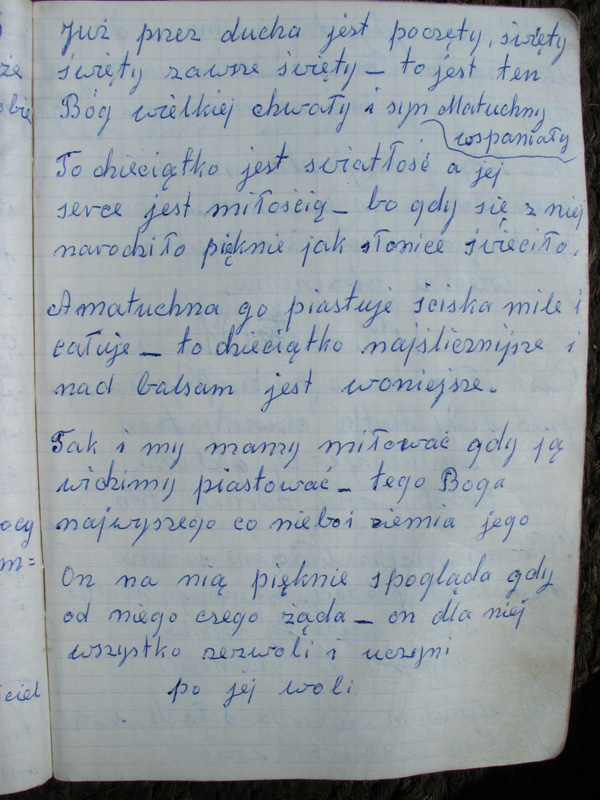 Już przez ducha jest poczęty, święty
święty zawsze święty – to jest ten
Bóg wielkiej chwały i syn Matuchny
wspaniały
To dzieciątko jest światłość a jej
serce jest miłością – bo gdy się z niej
narodziło pięknie jak słońce świeciło.
A matuchna go piastuje ściska mile i
całuje – to dzieciątko najśliczniejsze i
nad balsam jest woniejsze.
Tak i my mamy miłować gdy ją
widzimy piastować – tego Boga
najwyszego co niebo i ziemia jego
On na nią pięknie spogląda gdy
od niego czego żąda – on dla niej
wszystko zezwoli i uczyni
po jej woli
że
ocy
m=
ciel